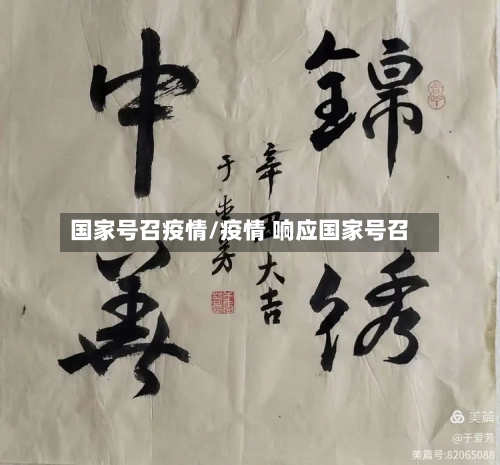 錦绣
中華
辛 大吉
于爱芳
国家号召疫情/疫情 响应国家号召
美篇
@于爱芳
美篇号:82065088